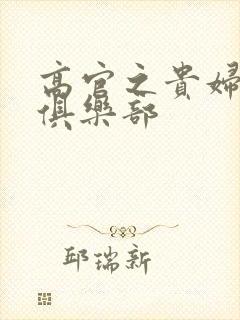 高官之貴婦
俱樂部
邱瑞新